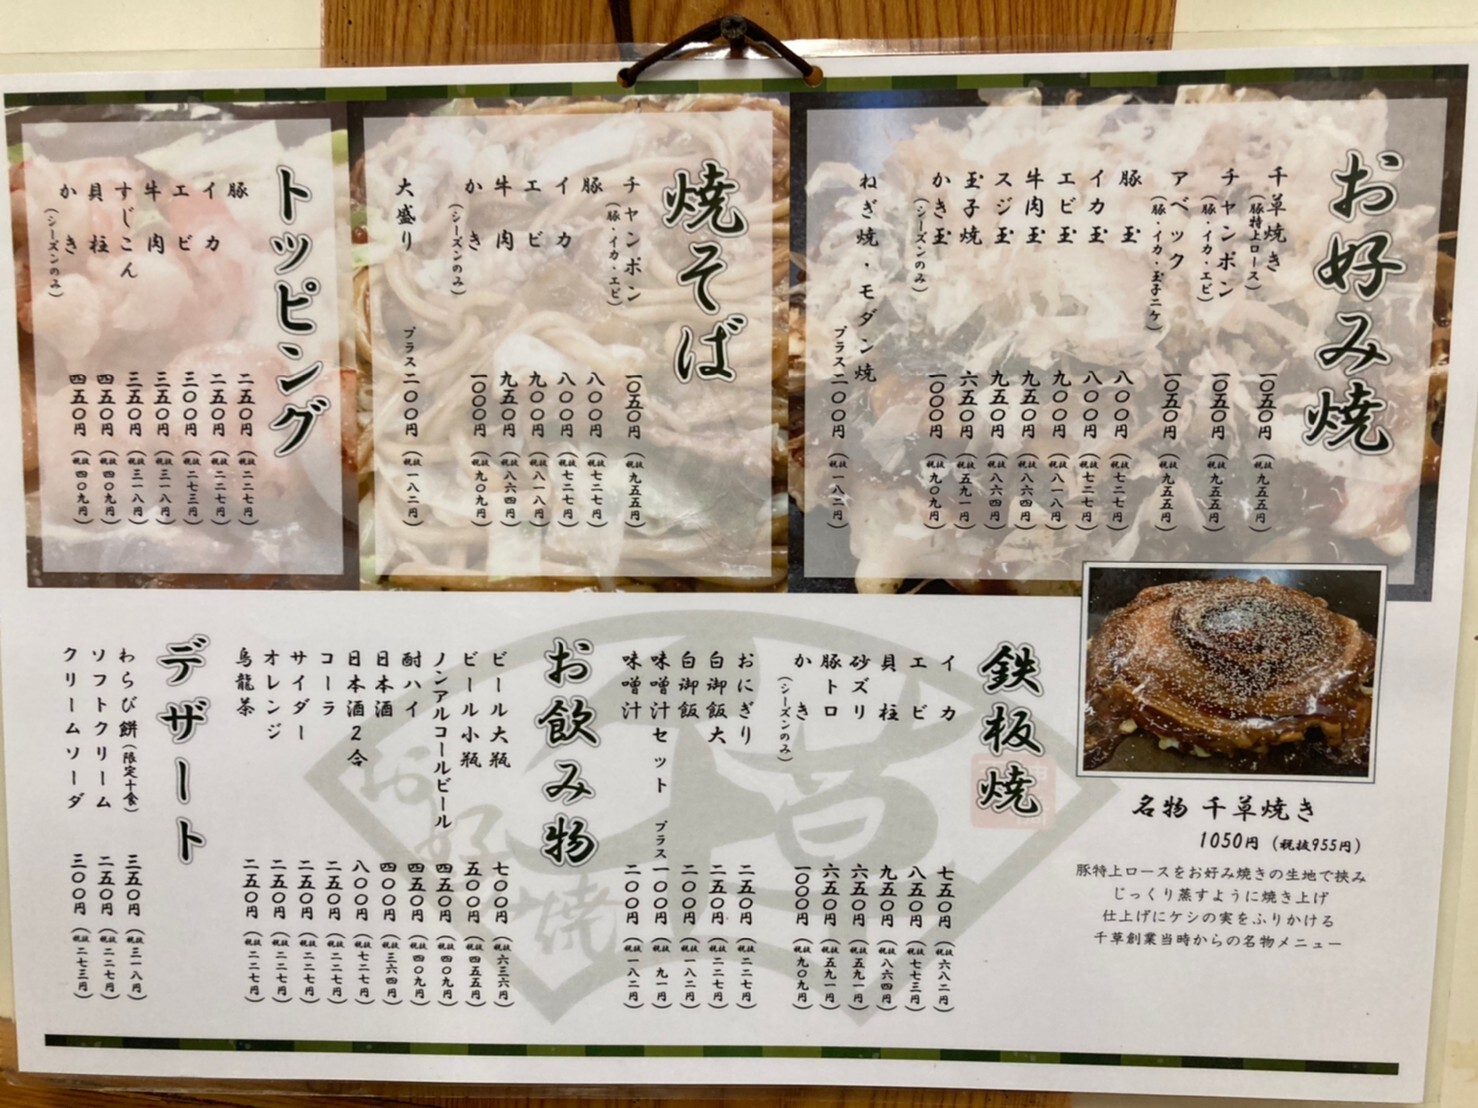 お好み焼
千草焼き 一〇五〇円（税抜九五五円）
（豚特上ロース）
チャンポン 一〇五〇円（税抜九五五円）
（豚・イカ・エビ）
アベック 一〇五〇円（税抜九五五円）
（豚・イカ・玉子ニケ）
豚玉 八〇〇円（税抜七二七円）
イカ玉 八〇〇円（税抜七二七円）
エビ玉 九〇〇円（税抜八一八円）
牛肉玉 九五〇円（税抜八六四円）
スジ玉 九五〇円（税抜八六四円）
玉子焼 六五〇円（税抜五九一円）
かき玉 一〇〇〇円（税抜九〇九円）
（シーズンのみ）
ねぎ焼・モダン焼 プラス二〇〇円（税抜一八二円）
焼そば
チャンポン 一〇五〇円（税抜九五五円）
（豚・イカ・エビ）
豚 八〇〇円（税抜七二七円）
イカ 八〇〇円（税抜七二七円）
エビ 九〇〇円（税抜八一八円）
牛肉 九五〇円（税抜八六四円）
かき 一〇〇〇円（税抜九〇九円）
（シーズンのみ）
大盛り プラス二〇〇円（税抜一八二円）
トッピング
豚 二五〇円（税抜二二七円）
イカ 二五〇円（税抜二二七円）
エビ 三〇〇円（税抜二七三円）
牛肉 三五〇円（税抜三一八円）
すじこん 三五〇円（税抜三一八円）
貝柱 四五〇円（税抜四〇九円）
かき 四五〇円（税抜四〇九円）
（シーズンのみ）
名物 千草焼き
1050円（税抜955円）
豚特上ロースをお好み焼きの生地で挟み
じっくり蒸すように焼き上げ
仕上げにケシの実をふりかける
千草創業当時からの名物メニュー
鉄板焼
イカ 七五〇円（税抜六八二円）
エビ 八五〇円（税抜七七三円）
貝柱 九五〇円（税抜八六四円）
砂ズリ 六五〇円（税抜五九一円）
豚トロ 六五〇円（税抜五九一円）
かき 一〇〇〇円（税抜九〇九円）
（シーズンのみ）
おにぎり 二五〇円（税抜二二七円）
白御飯大 二五〇円（税抜二二七円）
白御飯 二〇〇円（税抜一八二円）
味噌汁セット プラス一〇〇円（税抜九一円）
味噌汁 二〇〇円（税抜一八二円）
お飲み物
ビール大瓶 七〇〇円（税抜六三六円）
ビール小瓶 五〇〇円（税抜四五五円）
ノンアルコールビール 四五〇円（税抜四〇九円）
酎ハイ 四五〇円（税抜四〇九円）
日本酒 四〇〇円（税抜三六四円）
日本酒２合 八〇〇円（税抜七二七円）
コーラ 二五〇円（税抜二二七円）
サイダー 二五〇円（税抜二二七円）
オレンジ 二五〇円（税抜二二七円）
烏龍茶 二五〇円（税抜二二七円）
デザート
わらび餅（限定十食） 三五〇円（税抜三一八円）
ソフトクリーム 二五〇円（税抜二二七円）
クリームソーダ 三〇〇円（税抜二七三円）
千草
お好み焼